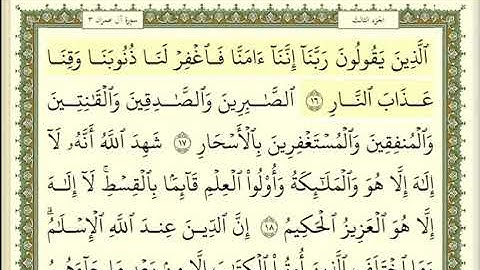 الجزء الثالث
سورة آل عمران ٣
ٱلَّذِينَ يَقُولُونَ رَبَّنَآ إِنَّنَآ ءَامَنَّا فَٱغْفِرْ لَنَا ذُنُوبَنَا وَقِنَا
عَذَابَ ٱلنَّارِ ١٦ ٱلصَّٰبِرِينَ وَٱلصَّٰدِقِينَ وَٱلْقَٰنِتِينَ
وَٱلْمُنفِقِينَ وَٱلْمُسْتَغْفِرِينَ بِٱلْأَسْحَارِ ١٧ شَهِدَ ٱللَّهُ أَنَّهُۥ لَآ
إِلَٰهَ إِلَّا هُوَ وَٱلْمَلَٰٓئِكَةُ وَأُو۟لُوا۟ ٱلْعِلْمِ قَآئِمًۢا بِٱلْقِسْطِ ۚ لَآ إِلَٰهَ
إِلَّا هُوَ ٱلْعَزِيزُ ٱلْحَكِيمُ ١٨ إِنَّ ٱلدِّينَ عِندَ ٱللَّهِ ٱلْإِسْلَٰمُ ۗ
وَمَا ٱخْتَلَفَ ٱلَّذِينَ أُوتُوا۟ ٱلْكِتَٰبَ إِلَّا مِنۢ بَعْدِ مَا جَآءَهُمُ